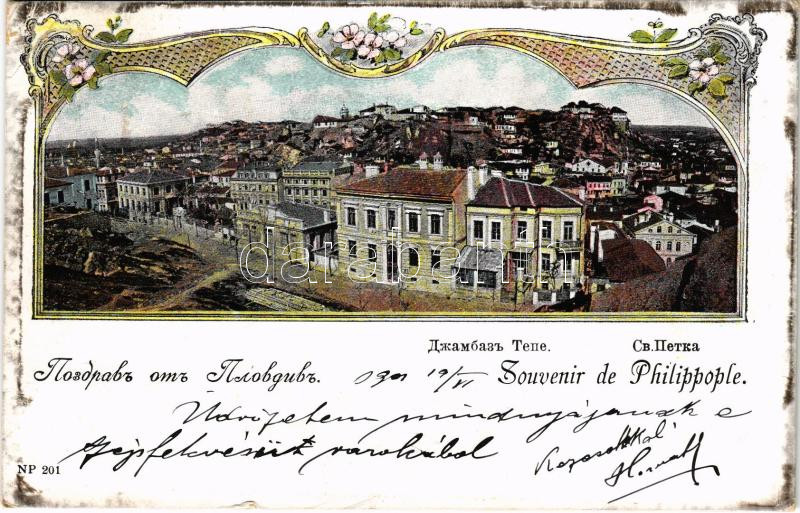 darabanth.com
Джамбазъ Тепе. Св.Петка
Поздравъ отъ Пловдивъ. 901 19/VI Souvenir de Philippople.
Üdvözletem mindnyájának e
szép fekvésű városkából
Kezcsókkal
Horváth
NP 201